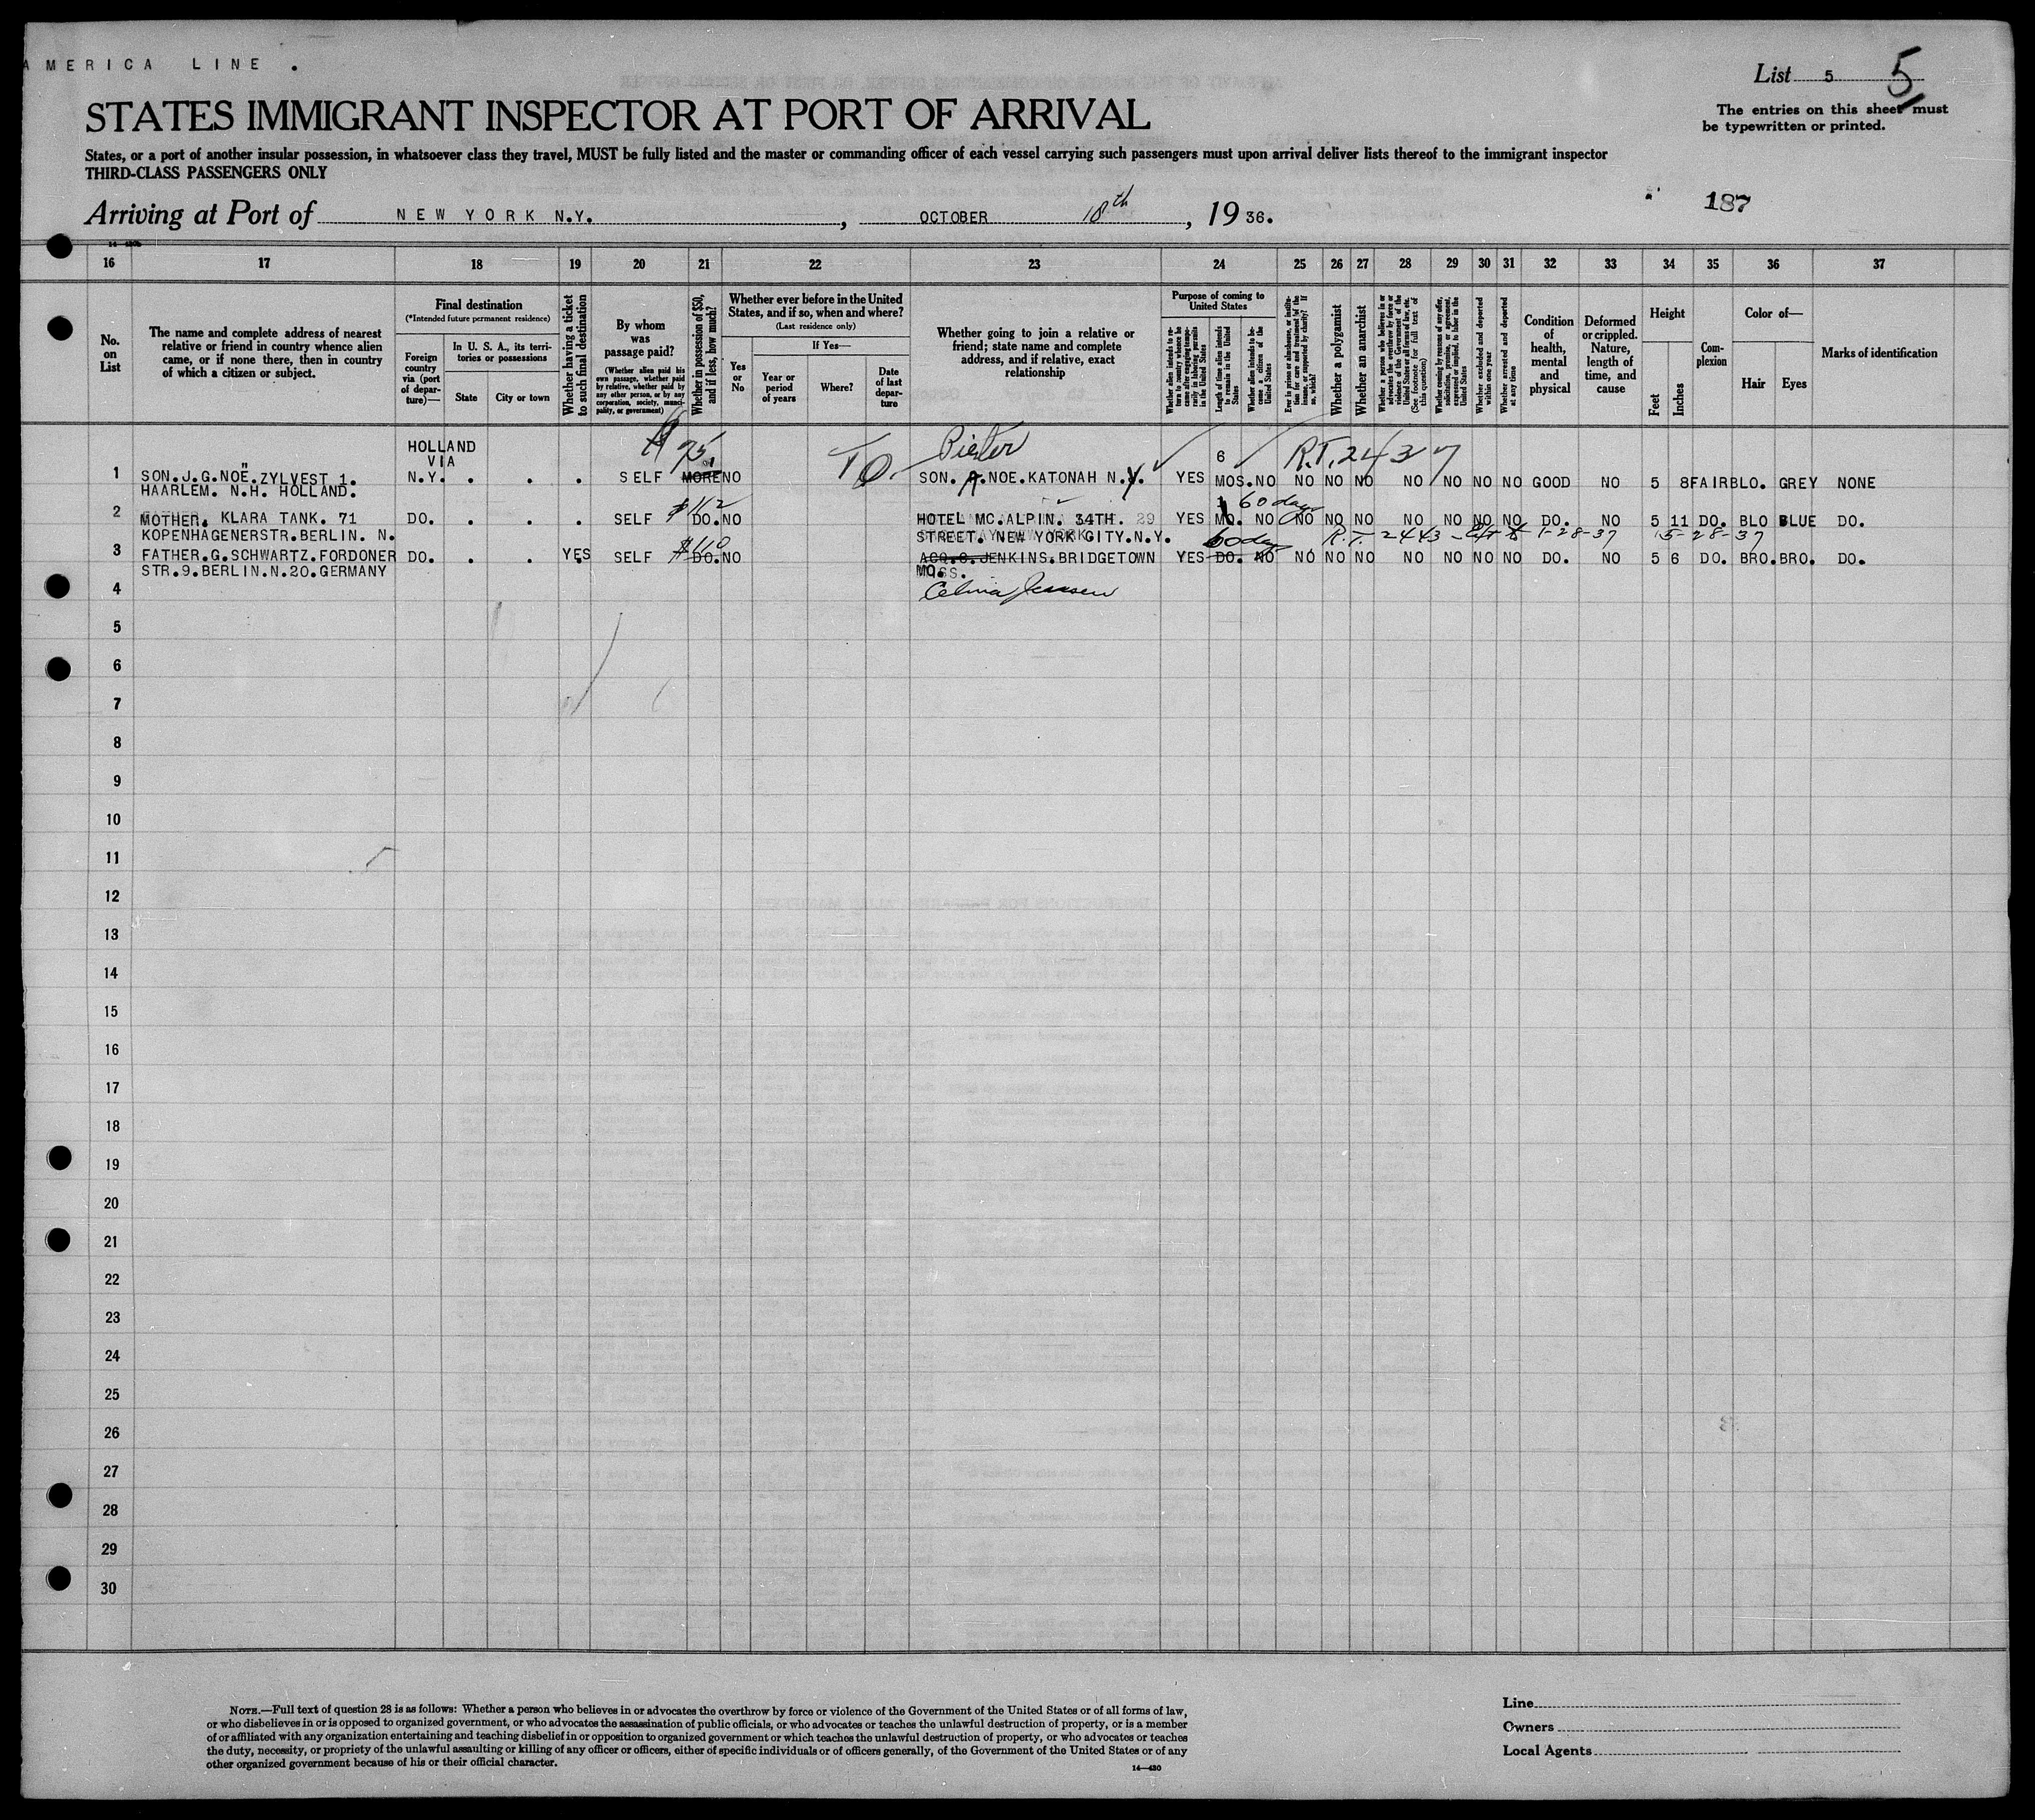 AMERICA LINE .
List 5 5
The entries on this sheet must
be typewritten or printed.
STATES IMMIGRANT INSPECTOR AT PORT OF ARRIVAL
States, or a port of another insular possession, in whatsoever class they travel, MUST be fully listed and the master or commanding officer of each vessel carrying such passengers must upon arrival deliver lists thereof to the immigrant inspector
THIRD-CLASS PASSENGERS ONLY
187
Arriving at Port of NEW YORK N.Y. , OCTOBER 18th , 19 36.
16 17 18 19 20 21 22 23 24 25 26 27 28 29 30 31 32 33 34 35 36 37
No. on List
The name and complete address of nearest relative or friend in country whence alien came, or if none there, then in country of which a citizen or subject.
Final destination
(*Intended future permanent residence)
Foreign country via (port of departure)—
In U. S. A., its territories or possessions
State
City or town
Whether having a ticket to such final destination
By whom was passage paid?
(Whether alien paid his own passage, whether paid by relative, whether paid by any other person, or by any corporation, society, municipality, or government)
Whether in possession of $50, and if less, how much?
Whether ever before in the United States, and if so, when and where?
(Last residence only)
Yes or No
If Yes—
Year or period of years
Where?
Date of last departure
Whether going to join a relative or friend; state name and complete address, and if relative, exact relationship
Purpose of coming to United States
Whether alien intends to return to country whence he came after engaging temporarily in laboring pursuits in the United States
Length of time alien intends to remain in the United States
Whether alien intends to become a citizen of the United States
Ever in prison or almshouse, or institution for care and treatment of the insane, or supported by charity? If so, which?
Whether a polygamist
Whether an anarchist
Whether a person who believes in or advocates the overthrow by force or violence of the Government of the United States or all forms of law, etc. (See footnote for full text of this question)
Whether coming by reasons of any offer, solicitation, promise, or agreement, expressed or implied, to labor in the United States
Whether excluded and deported within one year
Whether arrested and deported at any time
Condition of health, mental and physical
Deformed or crippled. Nature, length of time, and cause
Height
Feet
Inches
Complexion
Color of—
Hair
Eyes
Marks of identification
HOLLAND VIA
$75 TO. Pieter 6 R.T. 2437
1 SON.J.G.NOË.ZYLVEST 1. N.Y. . . . SELF MORE NO SON. A.NOE.KATONAH N.Y. YES MOS. NO NO NO NO NO NO NO NO GOOD NO 5 8 FAIR BLO. GREY NONE
HAARLEM. N.H. HOLLAND.
$112 1 60 days
2 MOTHER. KLARA TANK. 71 DO. . . . SELF DO. NO HOTEL MC.ALPIN. 34TH. 29 YES MO. NO NO NO NO NO NO NO NO DO. NO 5 11 DO. BLO BLUE DO.
KOPENHAGENERSTR.BERLIN. N. STREET. NEW YORK CITY.N.Y.
$110 60 days R.T. 2443 - Ext to 1-28-37 5-28-37
3 FATHER.G.SCHWARTZ.FORDONER DO. . . YES SELF DO. NO JENKINS.BRIDGETOWN YES DO. NO NO NO NO NO NO NO NO DO. NO 5 6 DO. BRO. BRO. DO.
STR.9.BERLIN.N.20.GERMANY MO.
4
5
6
7
8
9
10
11
12
13
14
15
16
17
18
19
20
21
22
23
24
25
26
27
28
29
30
NOTE.—Full text of question 28 is as follows: Whether a person who believes in or advocates the overthrow by force or violence of the Government of the United States or of all forms of law,
or who disbelieves in or is opposed to organized government, or who advocates the assassination of public officials, or who advocates or teaches the unlawful destruction of property, or is a member
of or affiliated with any organization entertaining and teaching disbelief in or opposition to organized government or which teaches the unlawful destruction of property, or who advocates or teaches
the duty, necessity, or propriety of the unlawful assaulting or killing of any officer or officers, either of specific individuals or of officers generally, of the Government of the United States or of any
other organized government because of his or their official character.
14—430
Line
Owners
Local Agents